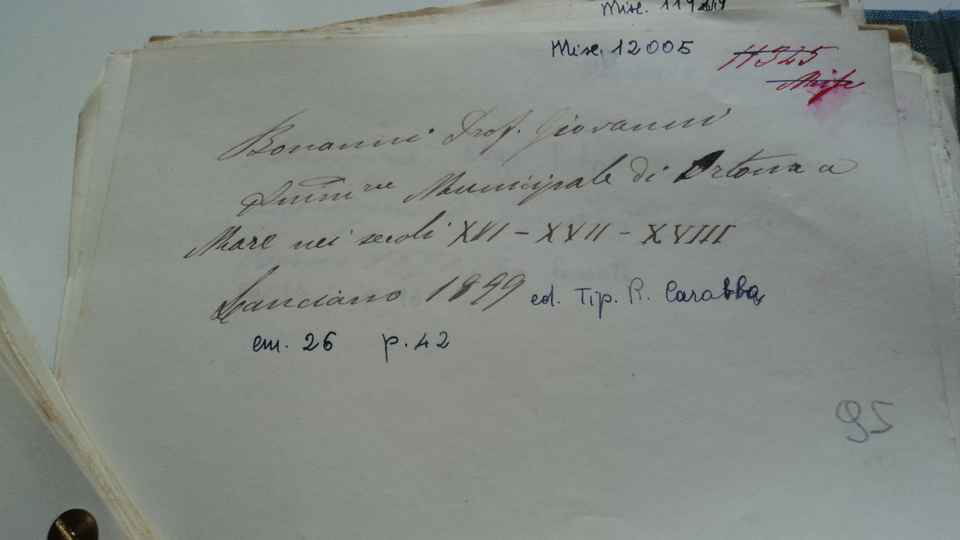 Misc. 119
Misc. 12005
11325
Misc
Bonanni Prof. Giovanni
Municipale di Ortona a
Mare nei secoli XVI - XVII - XVIII
Lanciano 1899 ed. Tip. R. Carabba,
cm. 26 p. 42
95